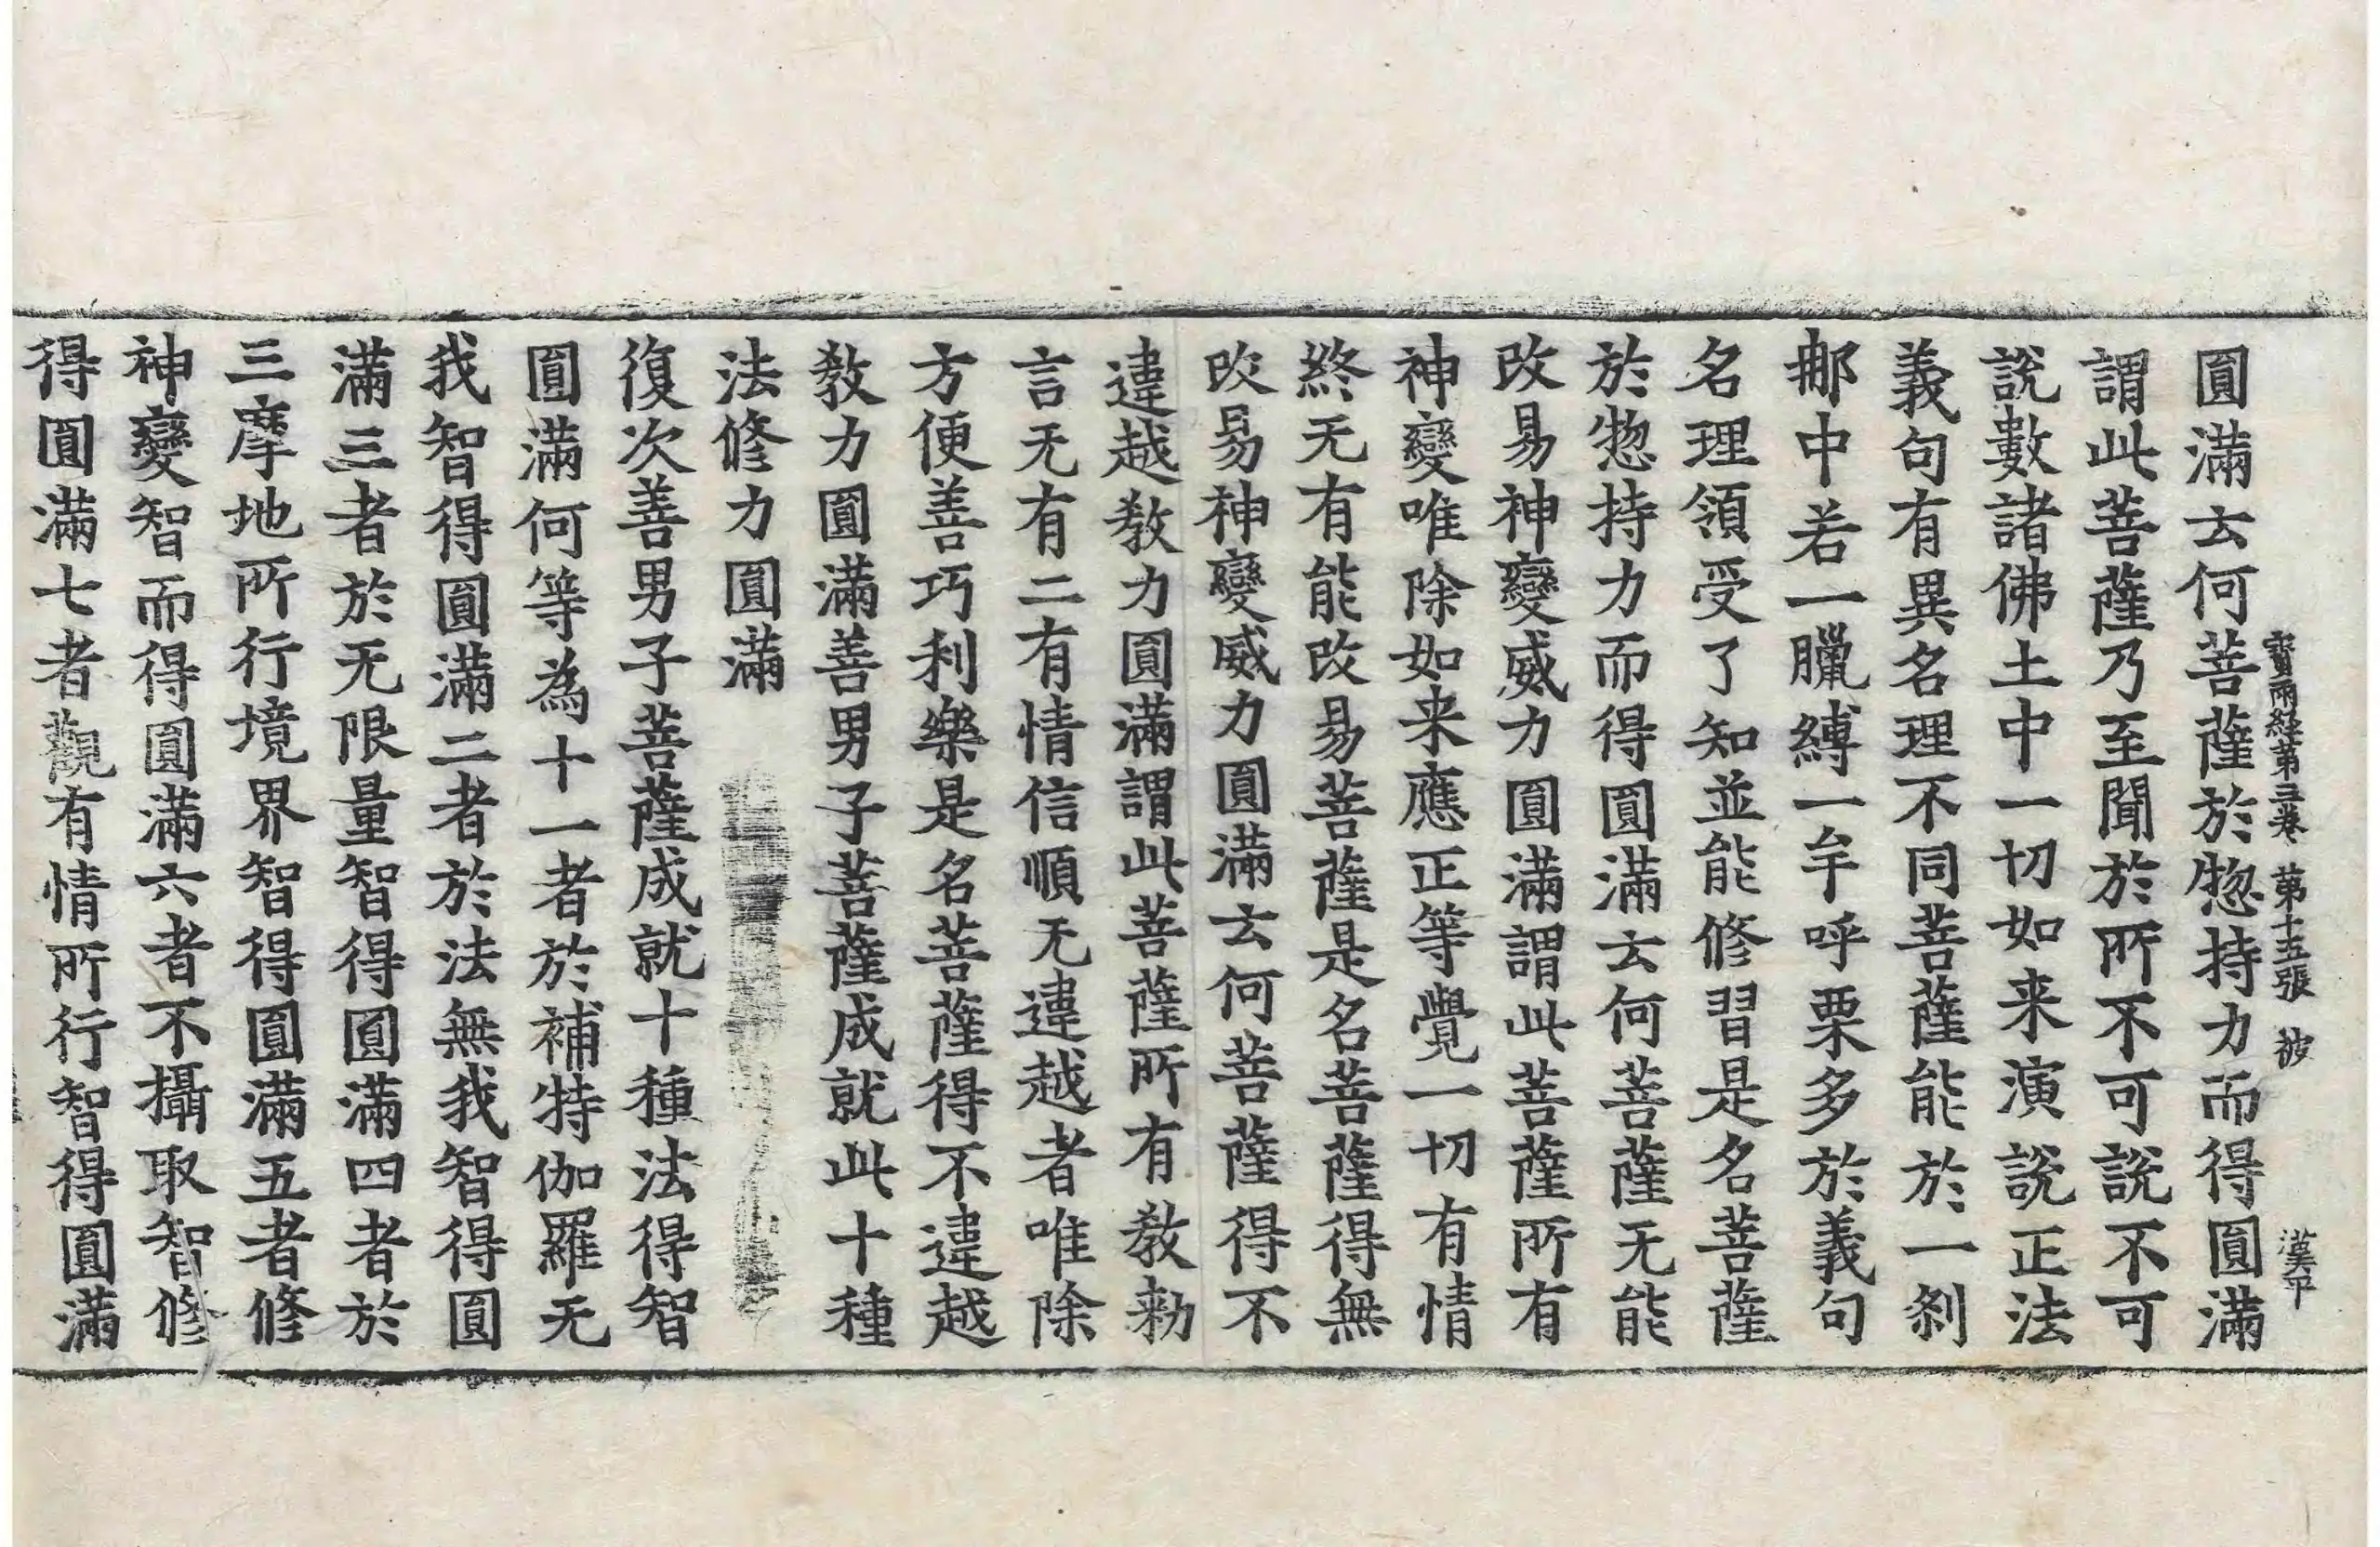 寶雨經第三卷 第十五張 被 漢平
圓滿云何菩薩於惣持力而得圓滿
謂此菩薩乃至聞於所不可說不可
說數諸佛土中一切如来演說正法
義句有異名理不同菩薩能於一剎
那中若一臘縛一牟呼栗多於義句
名理領受了知並能修習是名菩薩
於惣持力而得圓滿云何菩薩无能
改易神變威力圓滿謂此菩薩所有
神變唯除如来應正等覺一切有情
終无有能改易菩薩是名菩薩得無
改易神變威力圓滿云何菩薩得不
違越教力圓滿謂此菩薩所有教勑
言无有二有情信順无違越者唯除
方便善巧利樂是名菩薩得不違越
教力圓滿善男子菩薩成就此十種
法修力圓滿
復次善男子菩薩成就十種法得智
圓滿何等為十一者於補特伽羅无
我智得圓滿二者於法無我智得圓
滿三者於无限量智得圓滿四者於
三摩地所行境界智得圓滿五者修
神變智而得圓滿六者不攝取智修
得圓滿七者觀有情所行智得圓滿